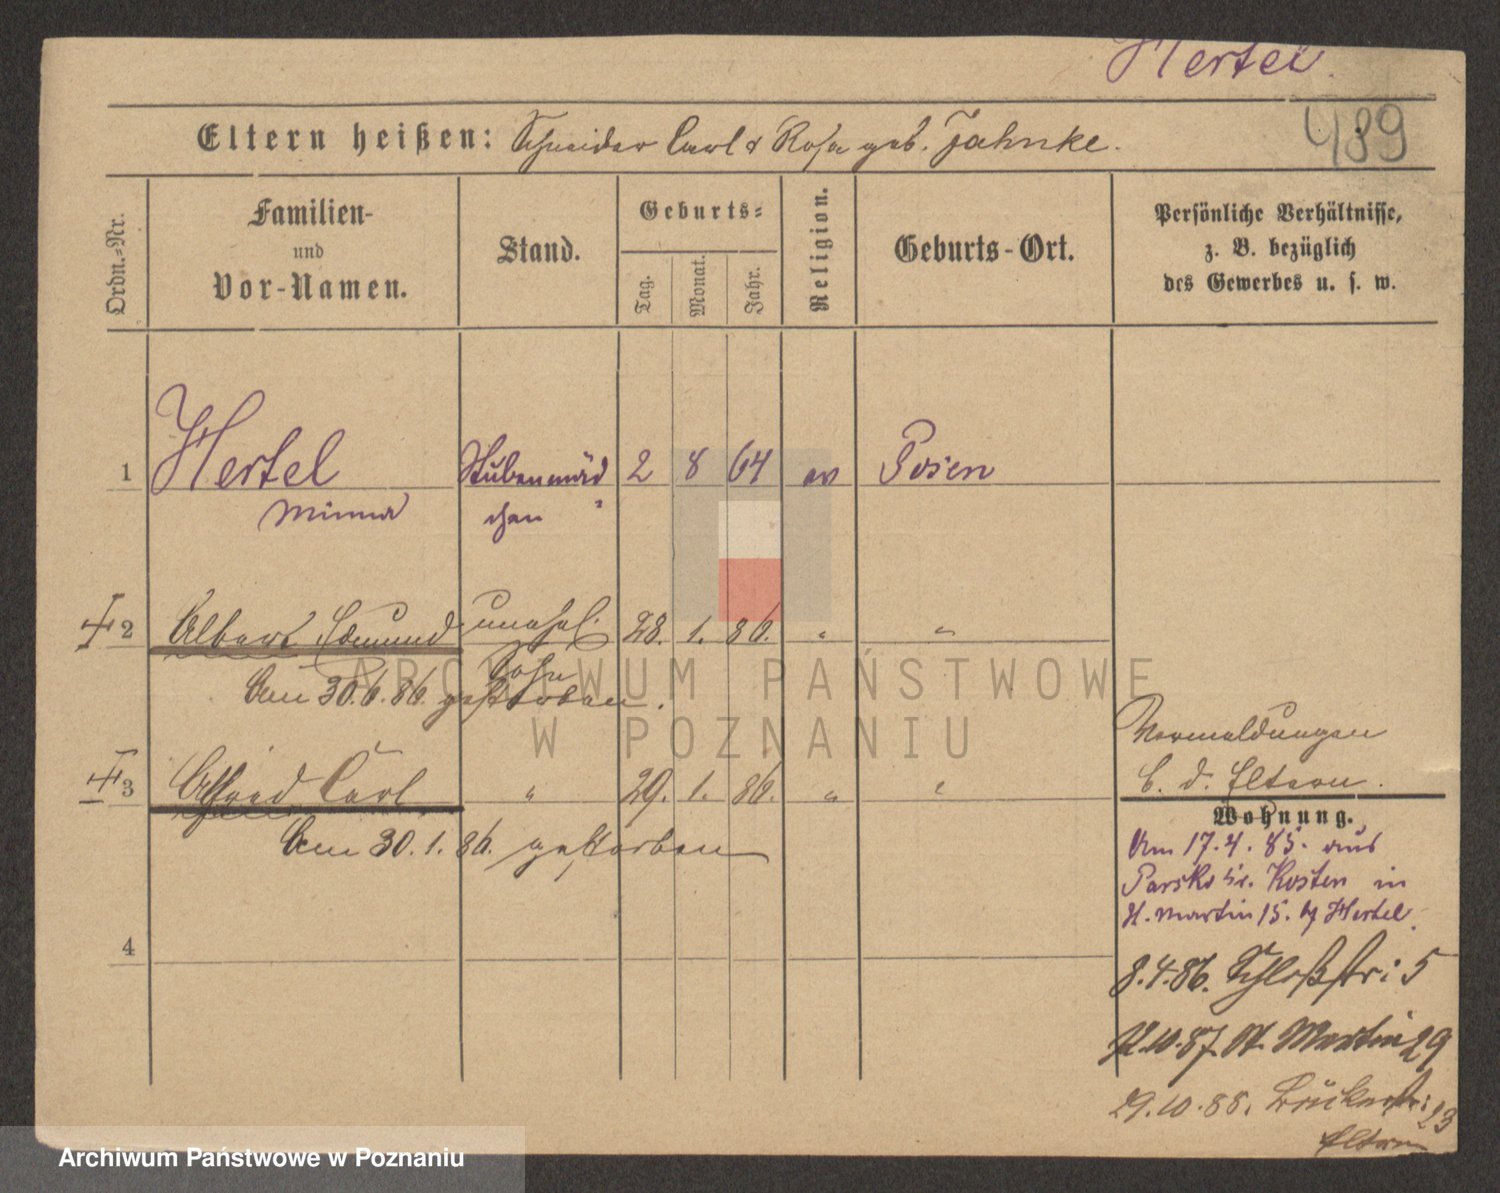 Hertel.
489
Eltern heißen: Schneider Carl & Rosa geb. Jahnke.
Ordn.=Nr.
Familien-
und
Vor-Namen.
Stand.
Geburts=
Tag.
Monat.
Jahr.
Religion.
Geburts-Ort.
Persönliche Verhältnisse,
z. B. bezüglich
des Gewerbes u. s. w.
1 Hertel Stubenmäd 2 8 64 ev Posen
Minna chen
2 Albert Edmund unehel. 28. 1. 86. " "
Sohn
Am 30.6.86. gestorben.
3 Alfred Carl " 29. 1. 86. " "
Am 30.1.86. gestorben
4
Vermeldungen
b. d. Eltern.
Wohnung.
Am 17.4.85. aus
Kosten in
St. Martin 15. Hertel.
8.4.86. Schloßstr: 5
10.87. St. Martin 29
29.10.88. 23
Eltern
ARCHIWUM PAŃSTWOWE
W POZNANIU
Archiwum Państwowe w Poznaniu